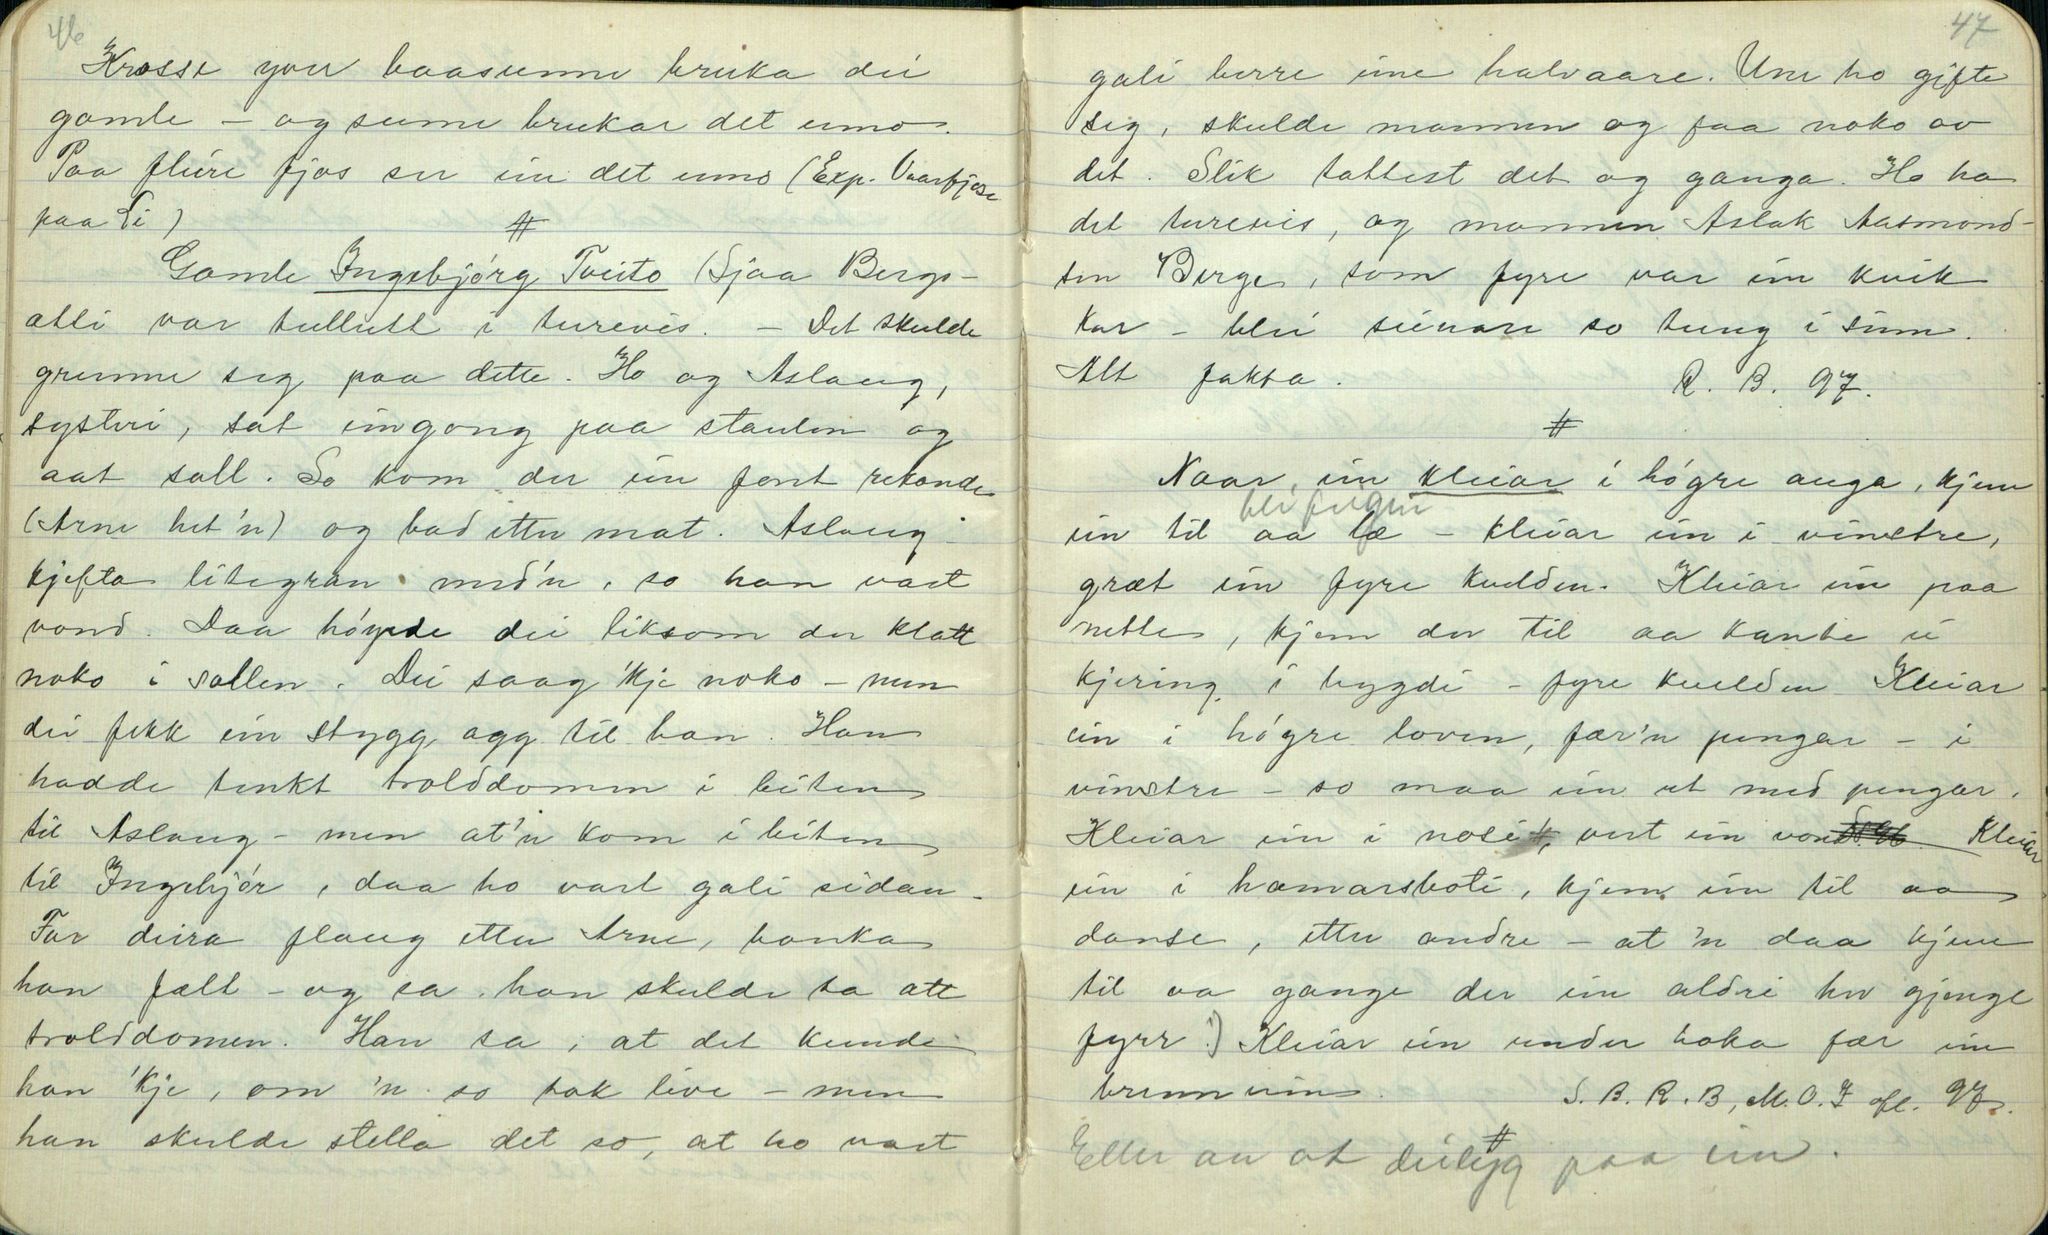 46
Krosse yver baasenne bruka dei
gamle – og sume brukar det enno.
Paa fleire fjos ser ein det enno (Exp. Vaarfjose
paa Li)
#
Gamle Ingebjörg Tveito (Sjaa Bergs-
ætti var tullutt i turevis. – Det skulde
grunne seg paa dette. Ho og Aslaug,
systeri, sat eingong paa staulen og
aat soll. So kom der ein fant rekande
(Arne het'n) og bad etter mat. Aslaug
kjefta litegran med'n, so han vart
vond. Daa höyrde dei liksom der klatt
noko i sollen. Dei saag 'kje noko – men
dei fekk ein stygg agg til han. Han
hadde tenkt trolddomen i biten
til Aslaug – men at'n kom i biten
til Ingebjör, daa ho vart gali sidan.
Far deira flaug etter Arne, banka
han fælt – og sa han skulde ta att
trolddomen. Han sa, at det kunde
han 'kje, om 'n so tok live – men
han skulde stella det so, at ho vart
47
gali berre eine halvaare. Um ho gifte
seg, skulde mannen og faa noko av
det. Slik tottest det og ganga. Ho ha
det turevis, og mannen Aslak Aasmond-
sen Berge, som fyre var ein kvik
kar – blei seinare so tung i sinn.
Alt fakta. R. B. 97.
#
Naar ein kleiar i högre auga, kjem
bli feigen
ein til aa læ – kleiar ein i vinstre,
græt ein fyre kvelden. Kleiar ein paa
netter, kjem der til aa kanbe ei
kjering i bygdi – fyre kvelden Kleiar
ein i högre loven, fær'n pengar – i
vinstre – so maa ein ut med pengar.
Kleiar ein i nosi, vert ein vond. Kleiar
ein i hamarsboti, kjem ein til aa
danse, etter andre – at 'n daa kjem
til aa gange der ein aldri hev gjenge
fyrr. 1) Kleiar ein under hoka fær ein
brennvin. S. B. R. B, M. O. T ofl. 97.
#
Eller au at deilyg paa ein.